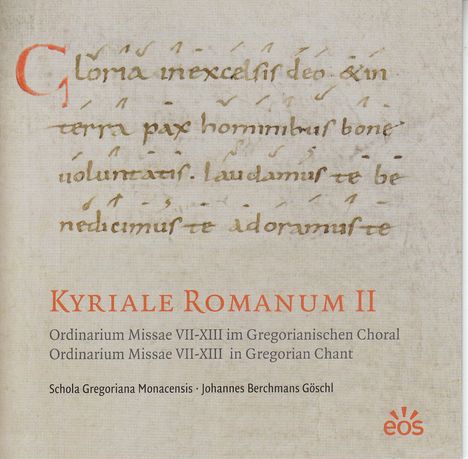 Gloria in excelsis deo. & in
terra pax hominibus bone
uoluntatis. laudamus te be
nedicimus te adoramus te
KYRIALE ROMANUM II
Ordinarium Missae VII-XIII im Gregorianischen Choral
Ordinarium Missae VII-XIII in Gregorian Chant
Schola Gregoriana Monacensis · Johannes Berchmans Göschl
eos